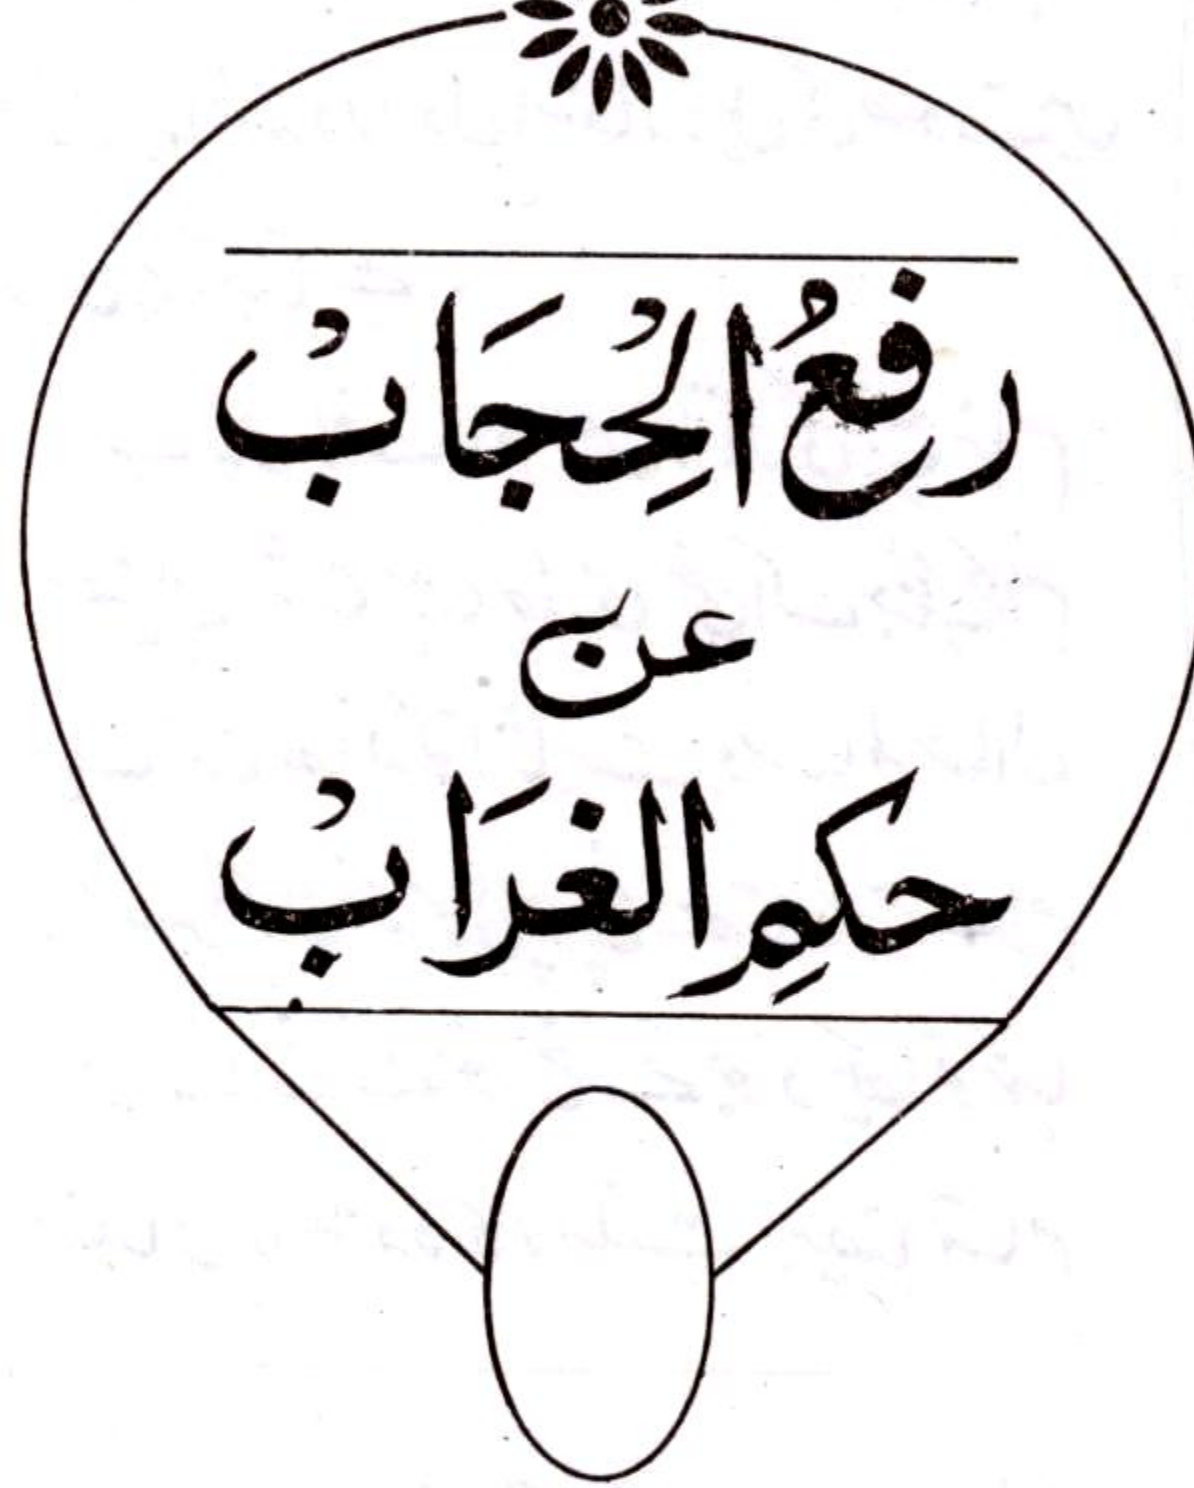 رفعُ الْحِجَابْ
عن
حكمِ الغرَابْ